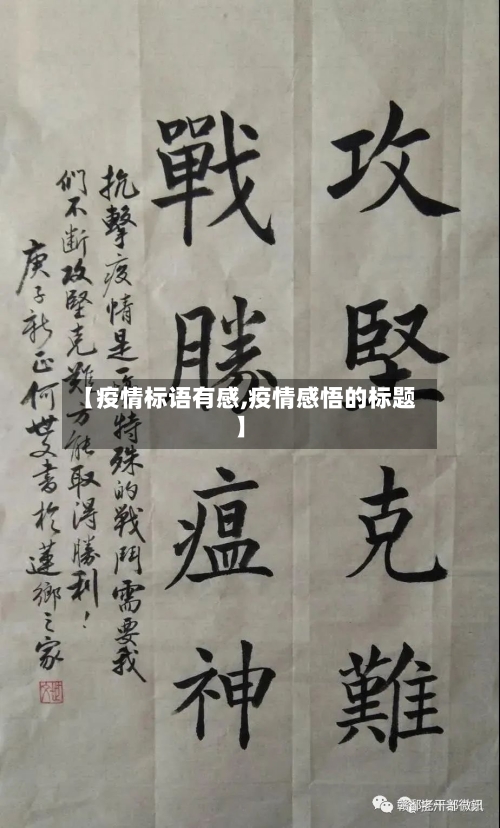 攻堅克難
戰勝瘟神
抗擊疫情是
特殊的戰鬥需要我
們不斷攻堅克難方能取得勝利！
庚子新正何世文書於蓮鄉之家
【疫情标语有感,疫情感悟的标题
】